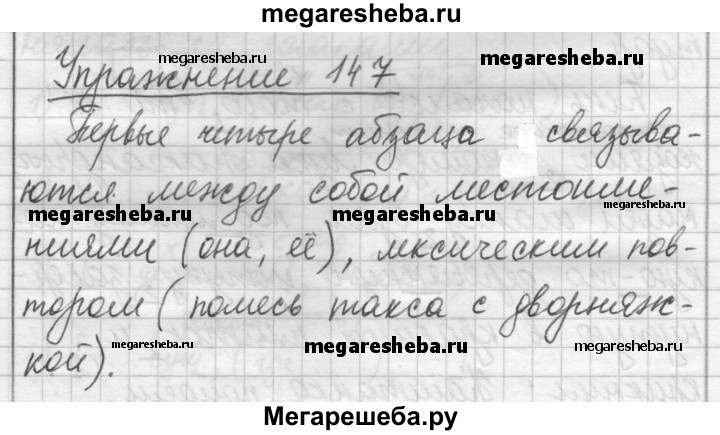 megaresheba.ru
Упражнение 147
megaresheba.ru
megaresheba.ru
Первые четыре абзаца связыва-
ются между собой местоиме-
megaresheba.ru
megaresheba.ru
megaresheba.ru
ниями (она, её), лексическим пов-
тором (помесь такса с дворняж-
кой).
megaresheba.ru
megaresheba.ru
megaresheba.ru
Мегарешеба.ру